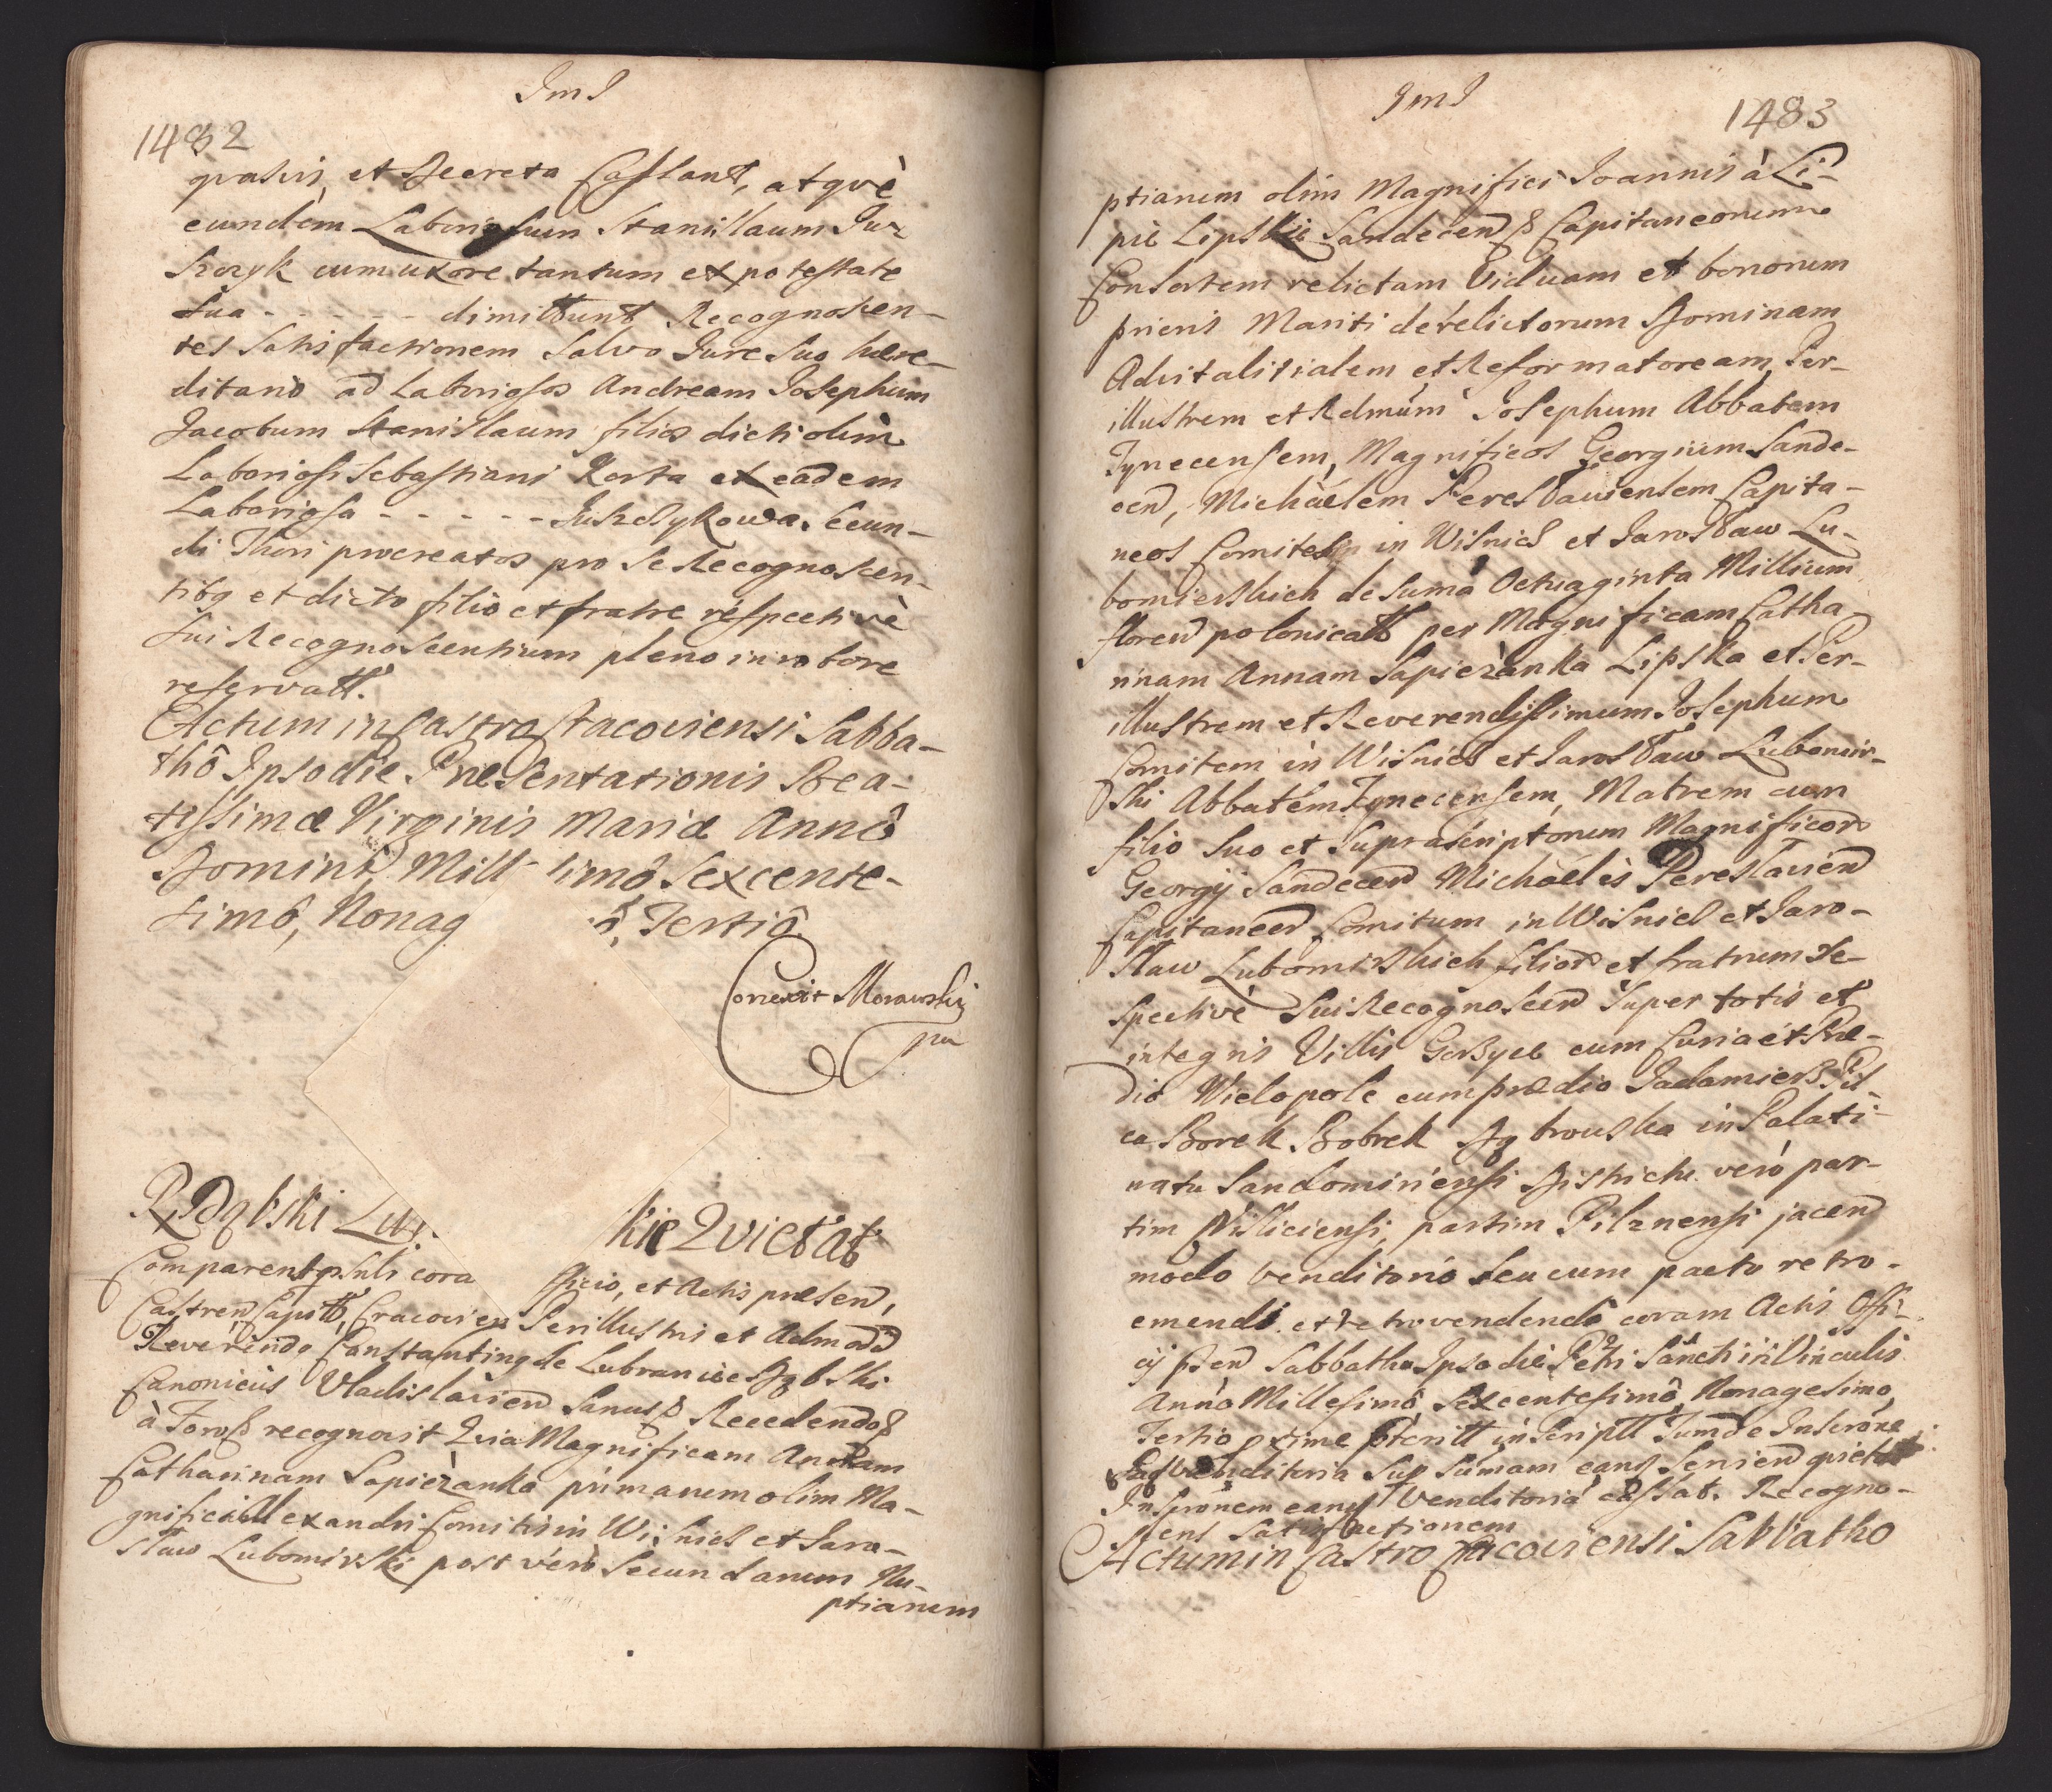 JmJ
1482
qvasvis, et Decreta Cassant, atqvè
eundem Laboriosum Stanislaum Jur
Szczyk cum uxore tantum ex potestate
sua - - - - - dimittunt Recognoscen-
tes Satisfactionem Salvo Jure Suo hære-
ditario ad Laboriosos Andream Josephum
Jacobum Stanislaum filios dicti olim
Laboriosi Sebastiani Korta et eadem
Laboriosa - - - - - Jurszczykowa. Secun-
di Thori procreatos pro se Recognoscen-
tibq et dicto filio et fratre respectivè
sui Recognoscentium pleno in robore
reservatt.
Actum in Castro Cracoviensi Sabba-
thô Ipso die Præsentationis Bea-
tissimæ Virginis Mariæ Annô
Domini, Mill simô Sexcente-
simô, Nonag ô, Tertiô.
Correxit Morawski
mp
R. Dąbski Lub.
kie Qvietat
Comparens psnlr cora fficio, et Actis præsend,
Castren, Capitt, Cracovien Perillustris et Admodd
Reverendq Constantinq de Lubraniec Dąbski
Canonicus Vladislavien Sanusq Recedendoq
à Foroq recognovit Qvia Magnificam Annam
Catharinam Sapiezanka primarum olim Ma-
gnifici Alexandri Comitis in Wisnicz et Jaro-
slaw Lubomirski post verò Secundarum Nu-
ptiarum
JmJ
1483
ptiarum olim Magnifici Joannis à Li-
pie Lipskie Sandecen & Capitaneorum
Consortem relictam Viduam et bonorum
prioris Mariti derelictorum Dominam
Advitalitialem et Reformatoream, Per-
illustrem et Rdmum Josephum Abbatem
Tynecensem, Magnificos Georgium Sande-
cen, Michäelem Pereslaviensem Capita-
neos Comites in Wisnicz et Jaroslaw Lu-
bomierskich de Suma Octuaginta Millium
floren polonicatt per Magnificam Catha-
rinam Annam Sapiezanka Lipska et Per-
illustrem et Reverendissimum Josephum
Comitem in Wisnicz et Jaroslaw Lubomir-
ski Abbatem Tynecensem, Matrem cum
filio Suo et Suprascriptorum Magnificor
Georgij Sandecen Michäelis Pereslavien
Capitaneor Comitum in Wisnicz et Jaro-
slaw Lubomirskich filior et fratrum re-
spectivè Sui Recognoscen Super totis et
integris Villis Gorzyce cum Curia et Præ-
dio Wielopole cum prædio Zadamierz Pil
ca Borek Bobrek Dąbrowska in Palati-
natu Sandomiriensi Districtu verò par-
tim Visliciensi, partim Pilznensi jacen
modo Venditorio seu cum pacto retro-
emendi et retrovendendi coram Actis Offi-
cij præsen Sabbatho Ipso die Petri Sancti in Vinculis
Annô Millesimô Sexcentesimô, Nonagesimo,
Tertio pxime præteritt inscriptt Tum de Inscrône
Venditoria Sup Sumam eandq Servien qvietat
Inscrônem eandq Venditoria cassat. Recogno-
scens Satisfactionem
Actum in Castro Cracoviensi Sabbatho